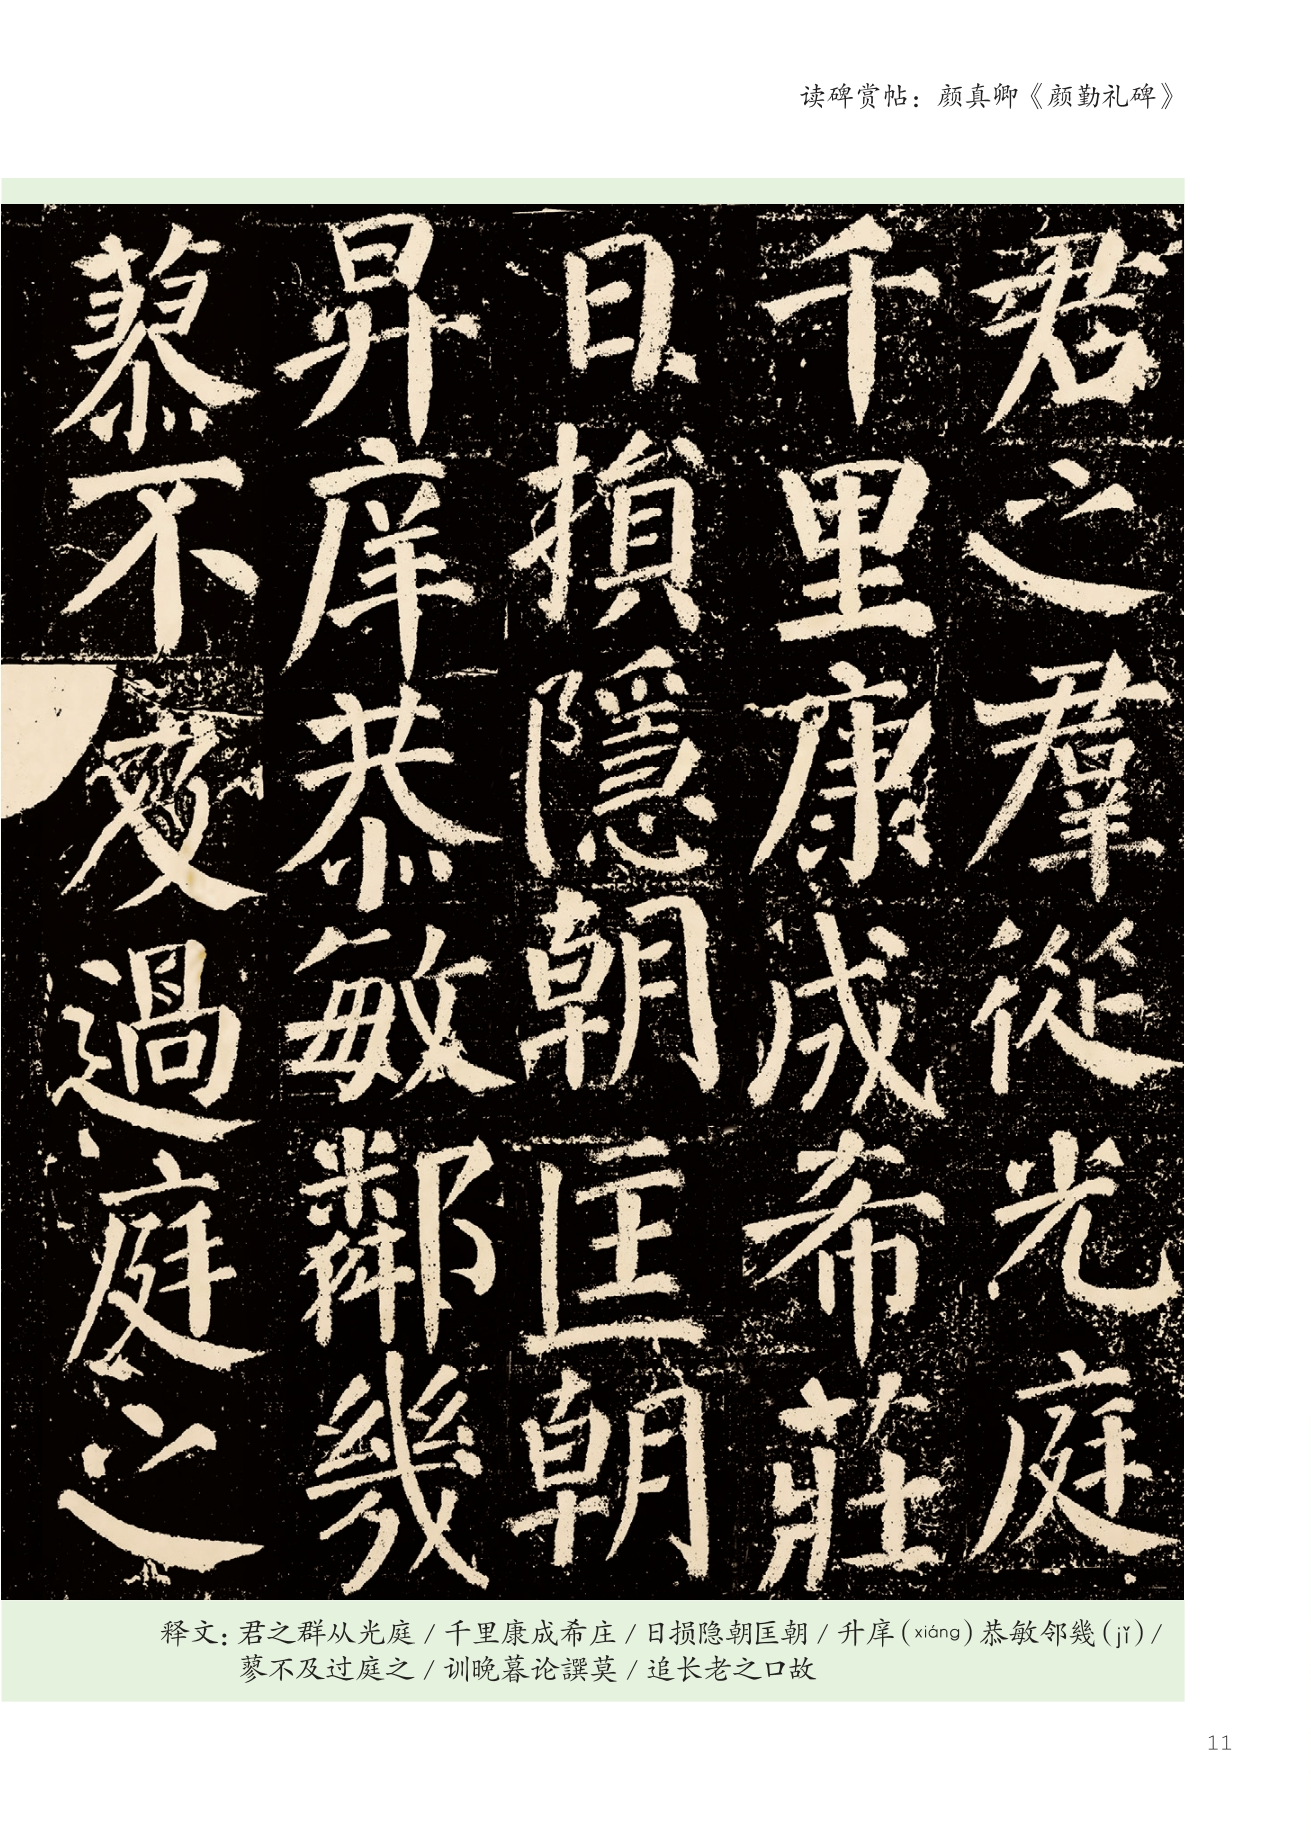 读碑赏帖：颜真卿《颜勤礼碑》
君之羣從光庭
千里康成希莊
日損隱朝匡朝
昇庠恭敏鄰幾
蓼不及過庭之
释文：君之群从光庭 / 千里康成希庄 / 日损隐朝匡朝 / 升庠（xiáng）恭敏邻幾（jǐ）/
蓼不及过庭之 / 训晚暮论譔莫 / 追长老之口故
11